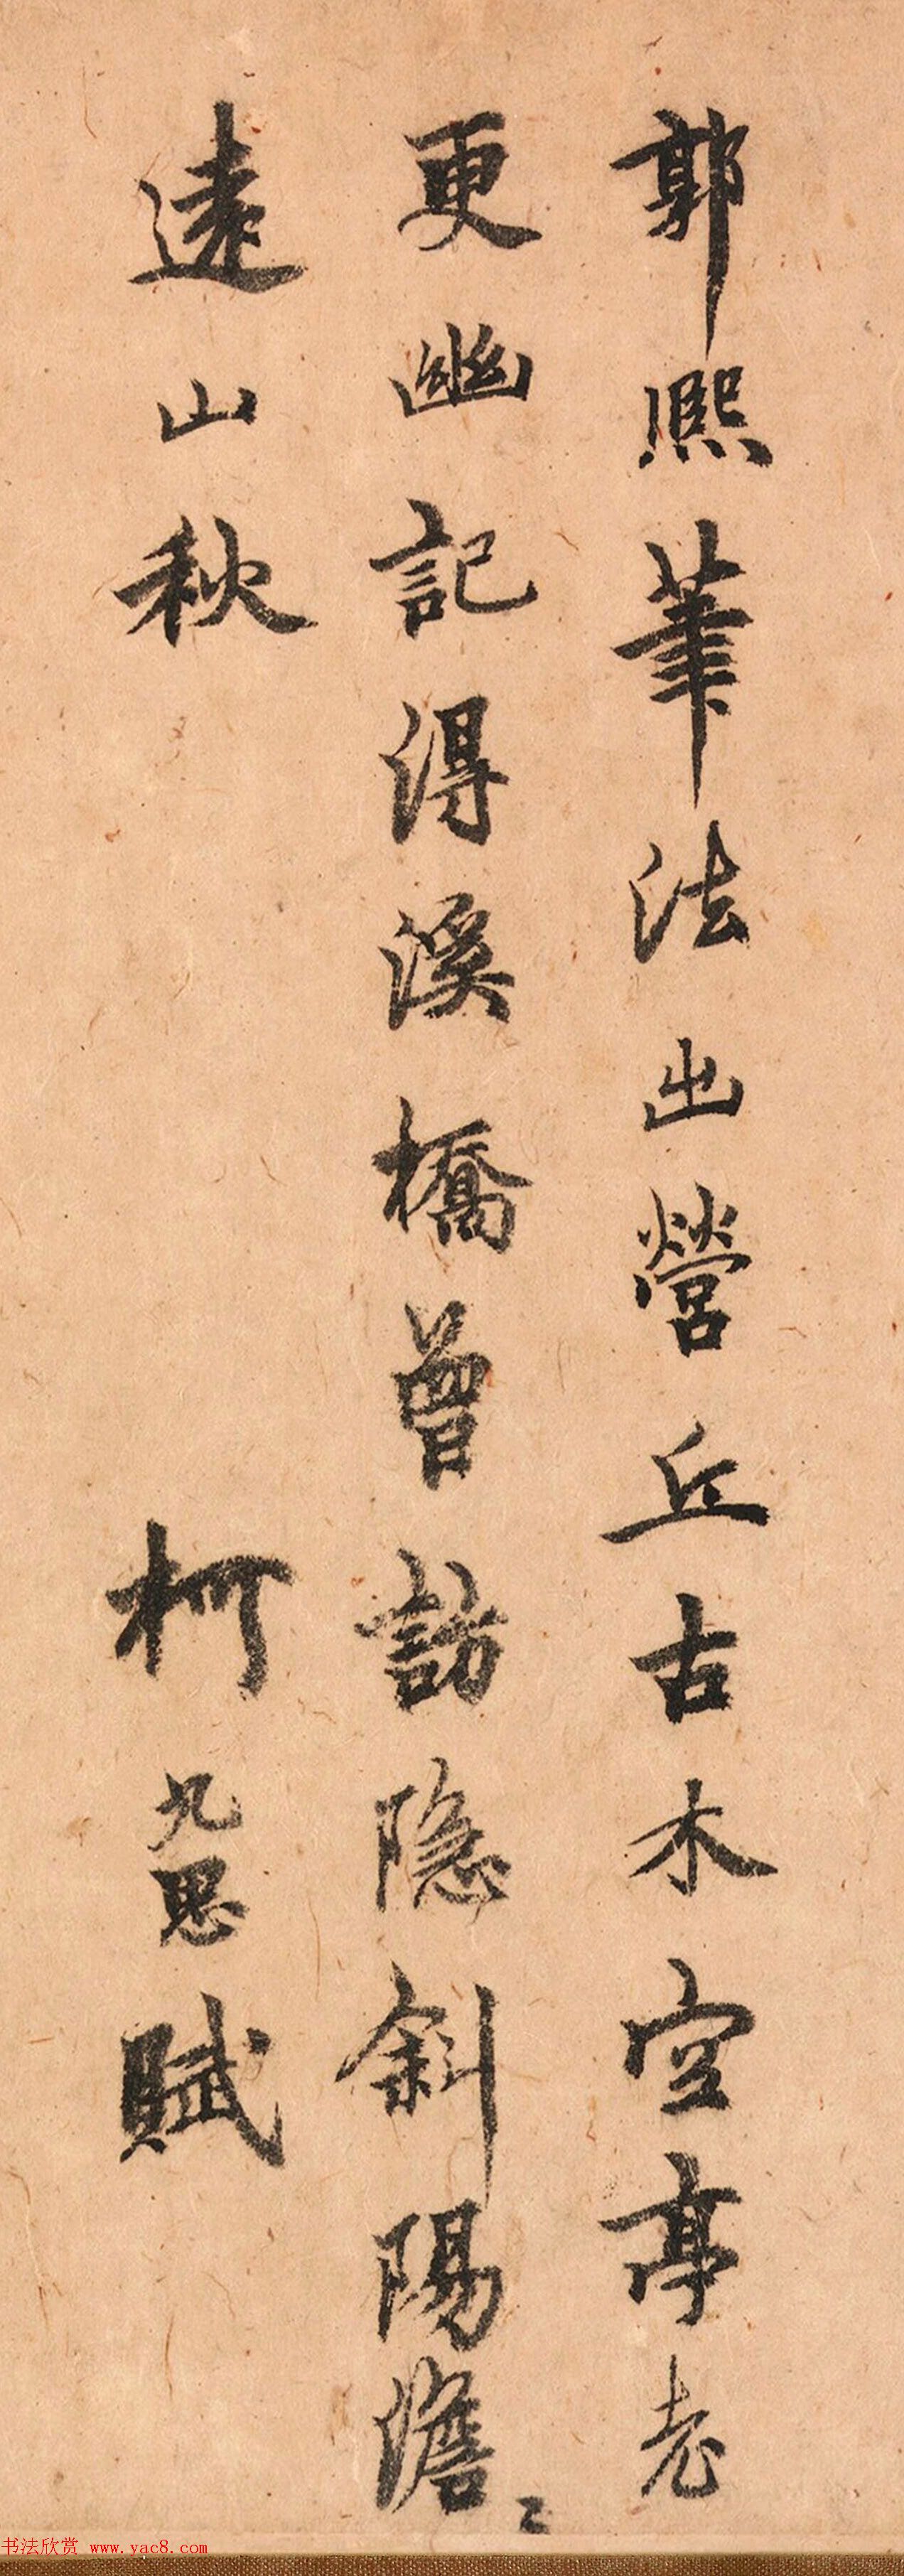 郭熙筆法出營丘古木空亭老
更幽記得溪橋曾訪隱斜陽澹〻
遠山秋
柯九思賦
书法欣赏 www.yac8.com